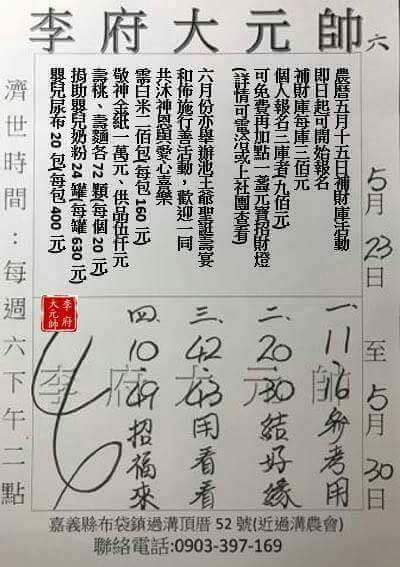 李府大元帥 六
5月23日 至 5月30日
農曆五月十五日補財庫活動
即日起可開始報名
補財庫每庫三佰元
個人報名三庫者九佰元
可免費再加點一盞元寶招財燈
(詳情可電洽或上社團查看)
六月份亦舉辦池王爺聖誕壽宴
和佈施行善活動，歡迎一同
共沐神恩與愛心喜樂
需白米二佰包(每包 160 元)
敬神金紙一萬元、供品伍仟元
壽桃、壽麵各 72 顆(每個 20 元)
捐助嬰兒奶粉 24 罐(每罐 630 元)
嬰兒尿布 20 包(每包 400 元)
濟世時間：每週六下午二點
李府大元帥
一、11、16參考用
二、20 30結好緣
三、42 43用看看
四、10 49招福來
李府
大元帥
嘉義縣布袋鎮過溝頂厝 52 號(近過溝農會)
聯絡電話:0903-397-169